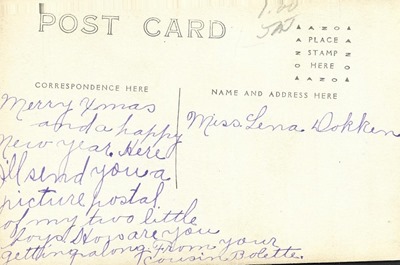 POST CARD
1.00
AZNO
PLACE
STAMP
HERE
CORRESPONDENCE HERE
NAME AND ADDRESS HERE
Merry Xmas
and a happy
New year. Here
Ill send you a
picture postal
of my two little
boys How are you
getting along From your
Cousin Bolette.
Miss Lena Dokken